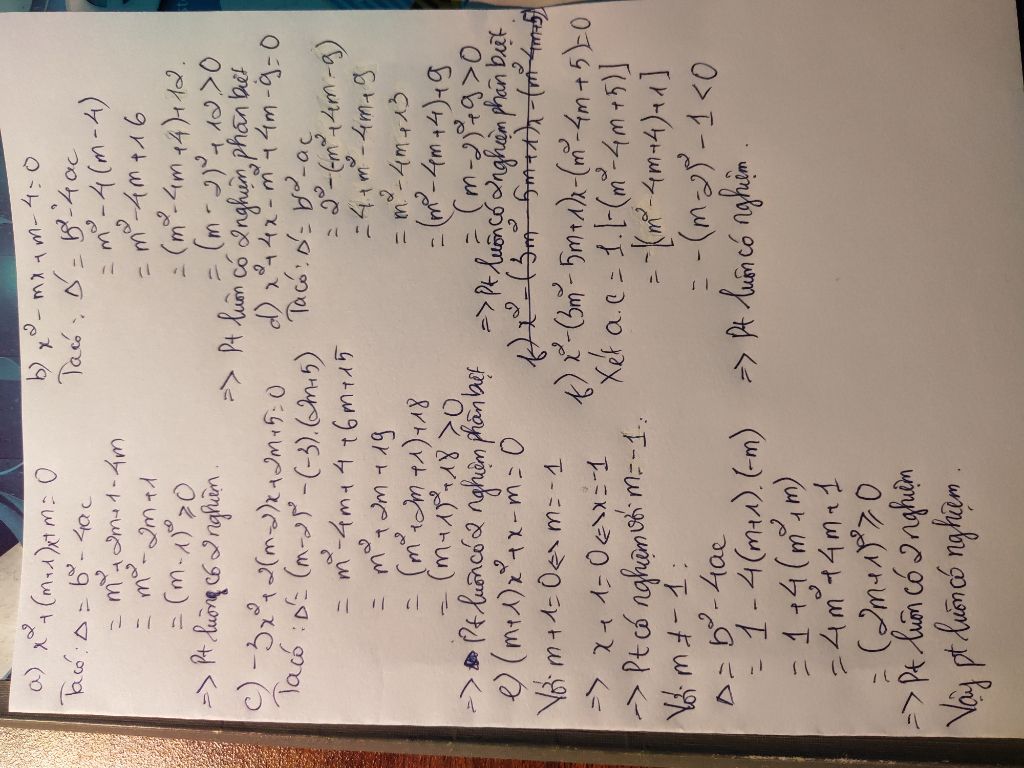 a) x² + (m+1)x + m = 0
Ta có: Δ = b² - 4ac
= m² + 2m + 1 - 4m
= m² - 2m + 1
= (m - 1)² ≥ 0
=> Pt luôn có 2 nghiệm.
c) -3x² + 2(m-2)x + 2m + 5 = 0
Ta có: Δ' = (m-2)² - (-3).(2m+5)
= m² - 4m + 4 + 6m + 15
= m² + 2m + 19
= (m² + 2m + 1) + 18
= (m+1)² + 18 > 0
=> Pt luôn có 2 nghiệm phân biệt
e) (m+1)x² + x - m = 0
Với m + 1 = 0 <=> m = -1
=> x + 1 = 0 <=> x = -1
=> Pt có nghiệm với m = -1.
Với m ≠ -1:
Δ = b² - 4ac
= 1 - 4(m+1).(-m)
= 1 + 4(m² + m)
= 4m² + 4m + 1
= (2m+1)² ≥ 0
=> Pt luôn có 2 nghiệm
Vậy pt luôn có nghiệm.
b) x² - mx + m - 4 = 0
Ta có: Δ' = b² - 4ac
= m² - 4(m - 4)
= m² - 4m + 16
= (m² - 4m + 4) + 12.
= (m - 2)² + 12 > 0
=> Pt luôn có 2 nghiệm phân biệt
d) x² + 4x - m² + 4m - 9 = 0
Ta có: Δ' = b² - ac
= 2² - (-m² + 4m - 9)
= 4 + m² - 4m + 9
= m² - 4m + 13
= (m² - 4m + 4) + 9
= (m - 2)² + 9 > 0
=> Pt luôn có 2 nghiệm phân biệt
f) x² - (3m² - 5m + 1)x - (m² - 4m + 5)
f) x² - (3m² - 5m + 1)x - (m² - 4m + 5) = 0
Xét a.c = 1.[-(m² - 4m + 5)]
= -[(m² - 4m + 4) + 1]
= -(m - 2)² - 1 < 0
=> Pt luôn có nghiệm.